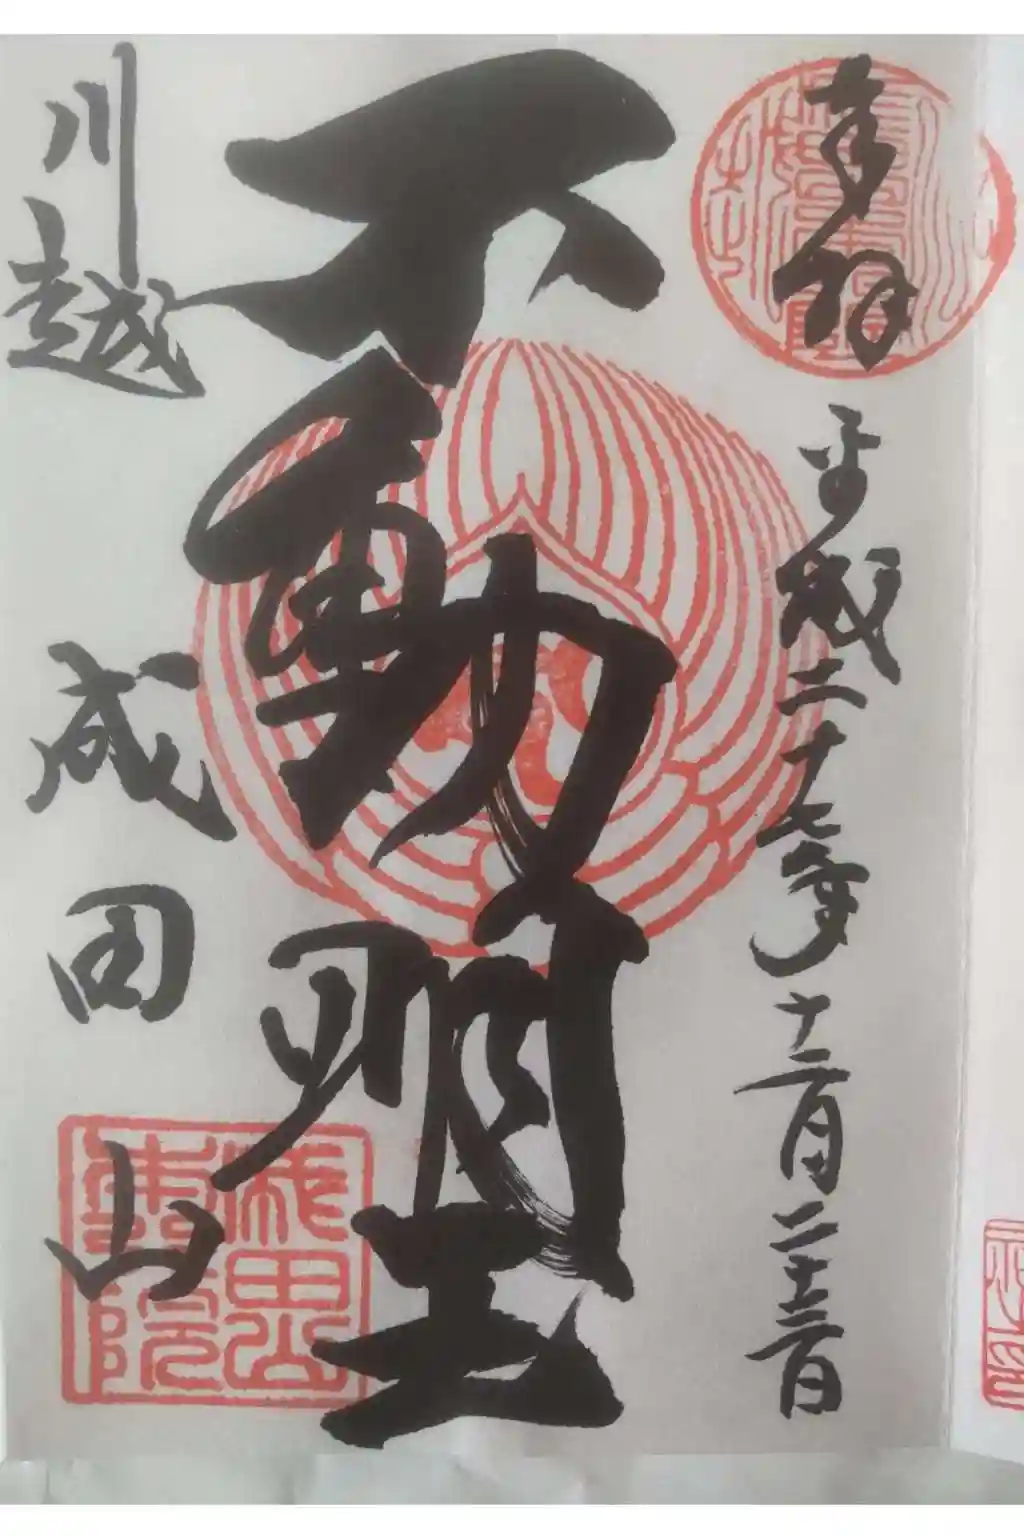 奉拝
平成二十七年十二月二十三日
不動明王
川越 成田山
成田山
本行院